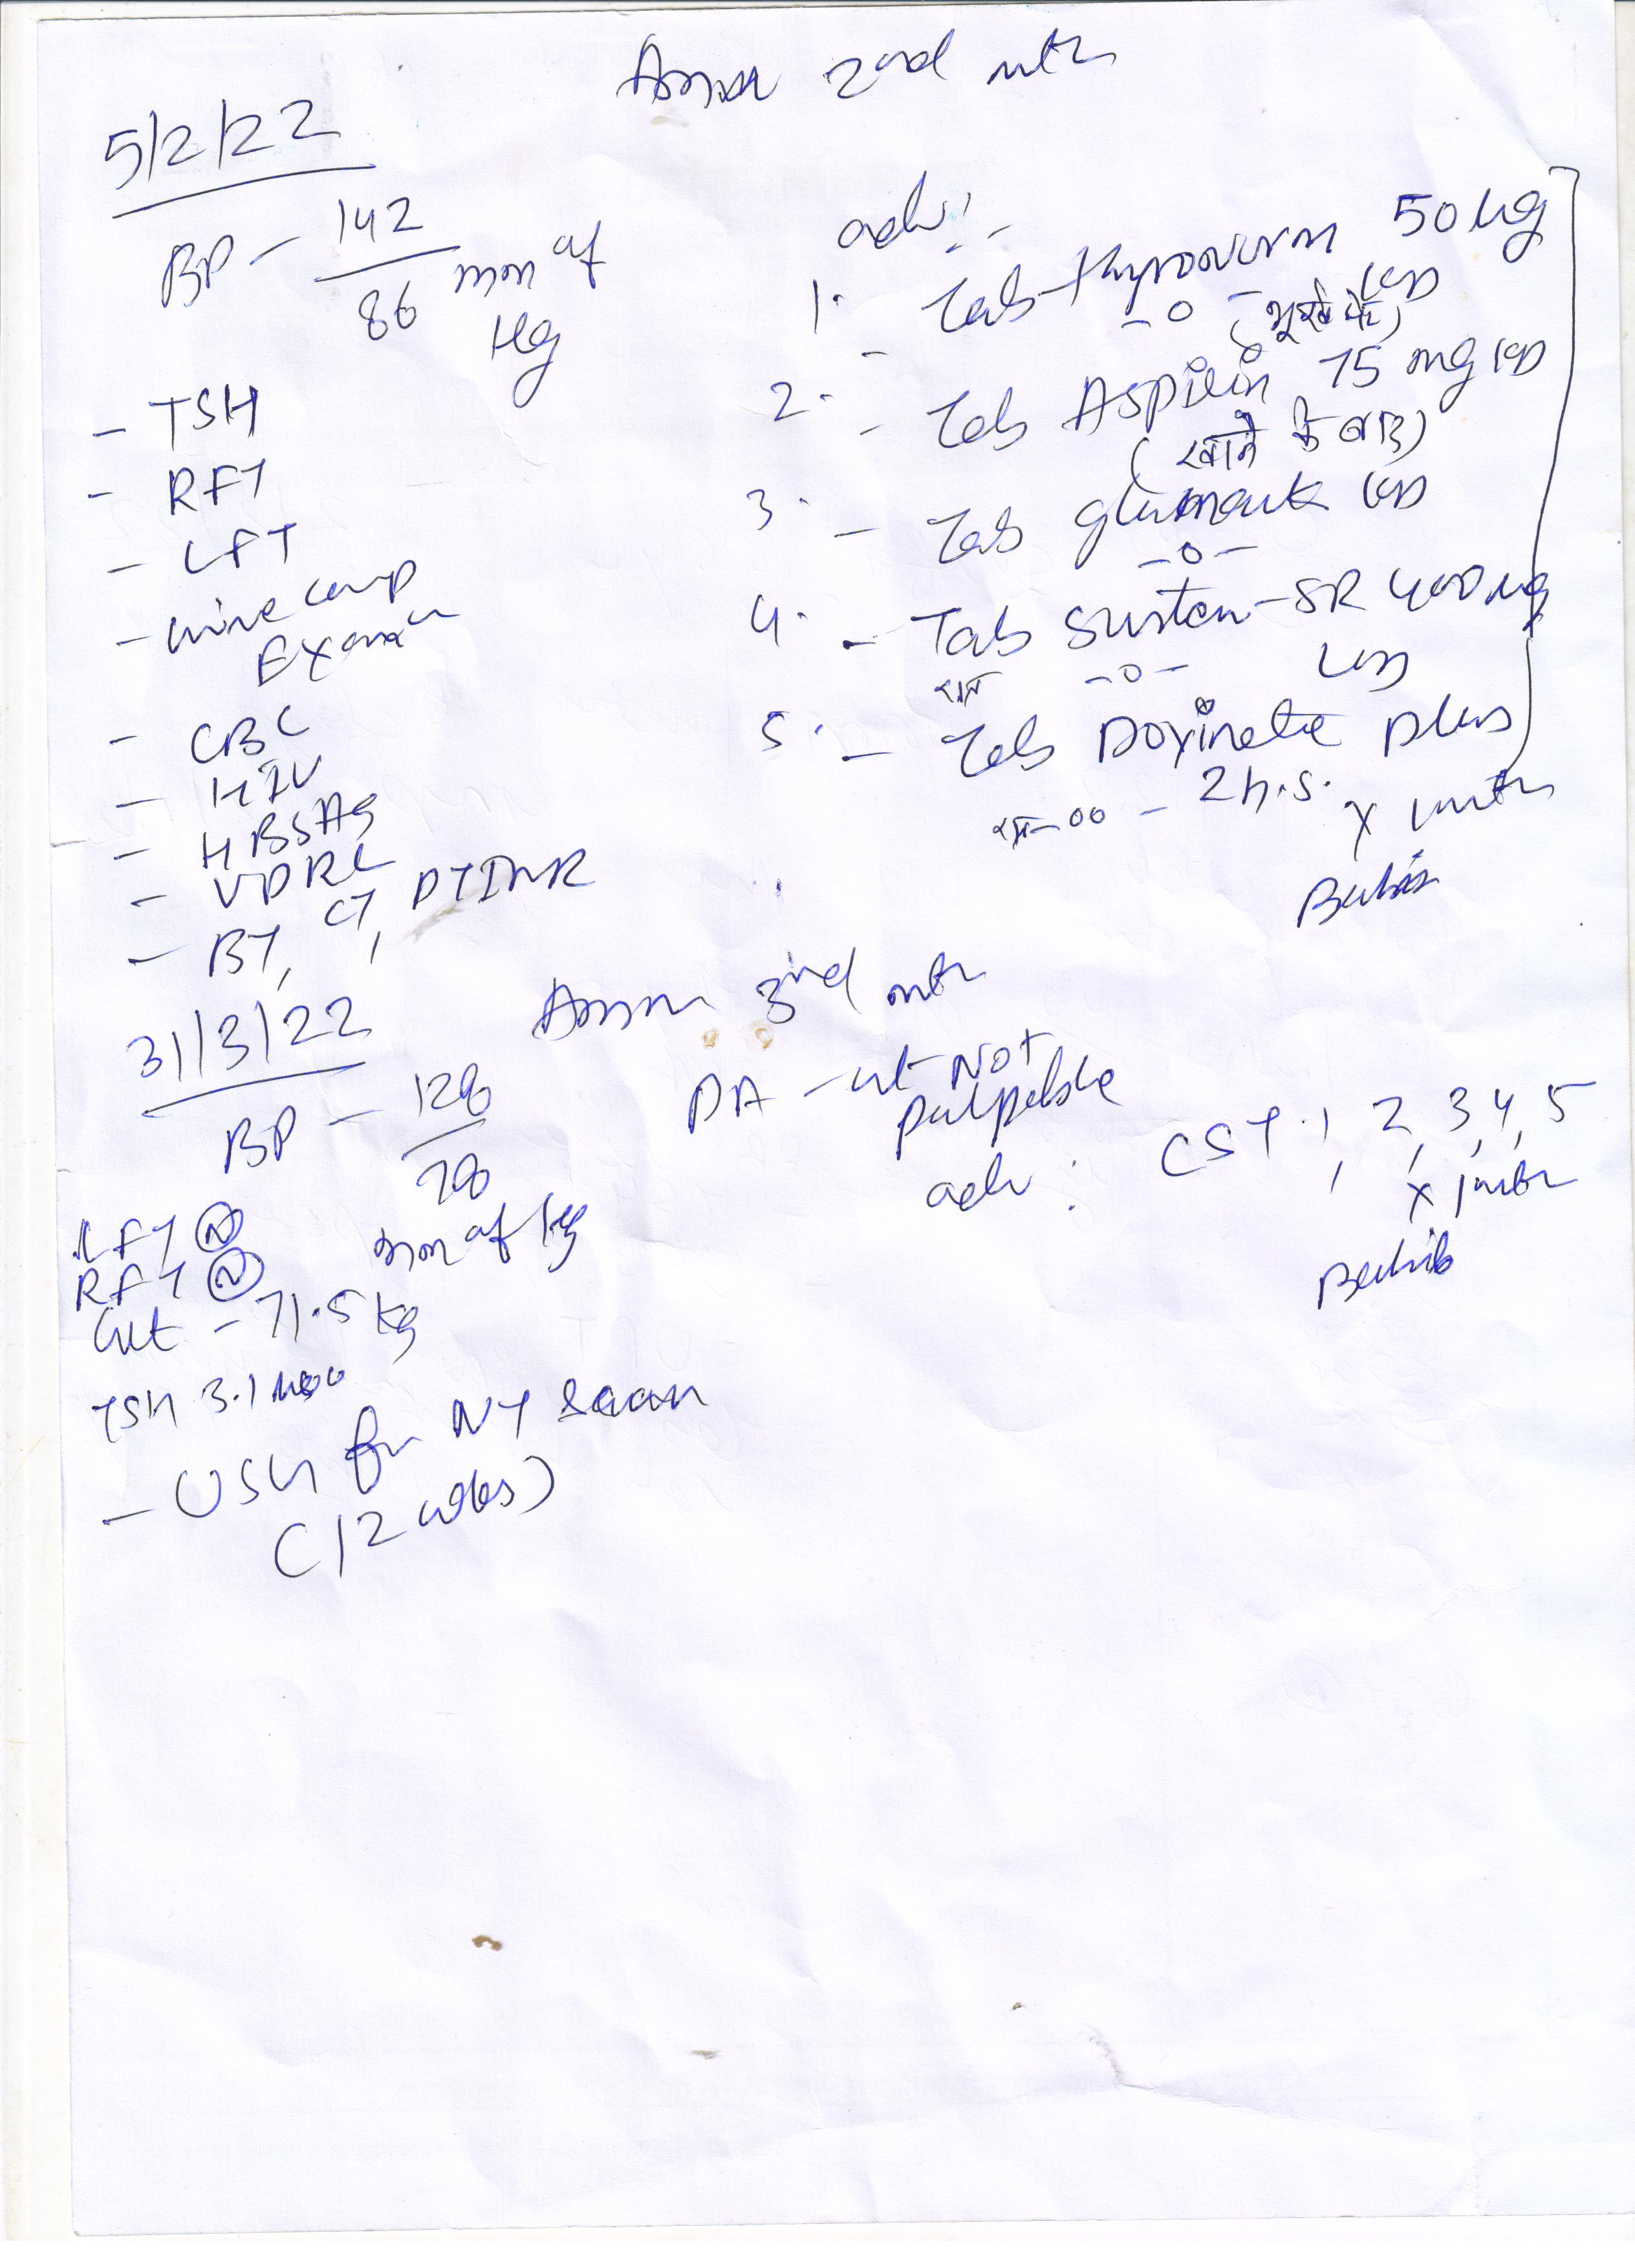 2nd mth
5/2/22
BP - 142/86 mm of Hg
- TSH
- RFT
- LFT
- urine comp Exam
- CBC
- HIV
- HBSAg
- VDRL
- BT, CT, PTINR
adv:-
1. - Tab Thyronorm 50 ug OD
-0-
2. - Tab Aspirin 75 mg OD
(खाने के बाद)
3. - Tab OD
-0-
4. - Tab Susten-SR 400 mg
-0-
5. - Tab Doxinate plus
00 - 2 h.s. x 1 mth
31/3/22
3rd mth
BP - 128/78 mm of Hg
PA - ut Not palpable
adv: CST 1, 2, 3, 4, 5
x 1 mth
LFT (N)
RFT (N)
Wt - 71.5 kg
TSH 3.1
- USG for NT Scan
(12 wks)